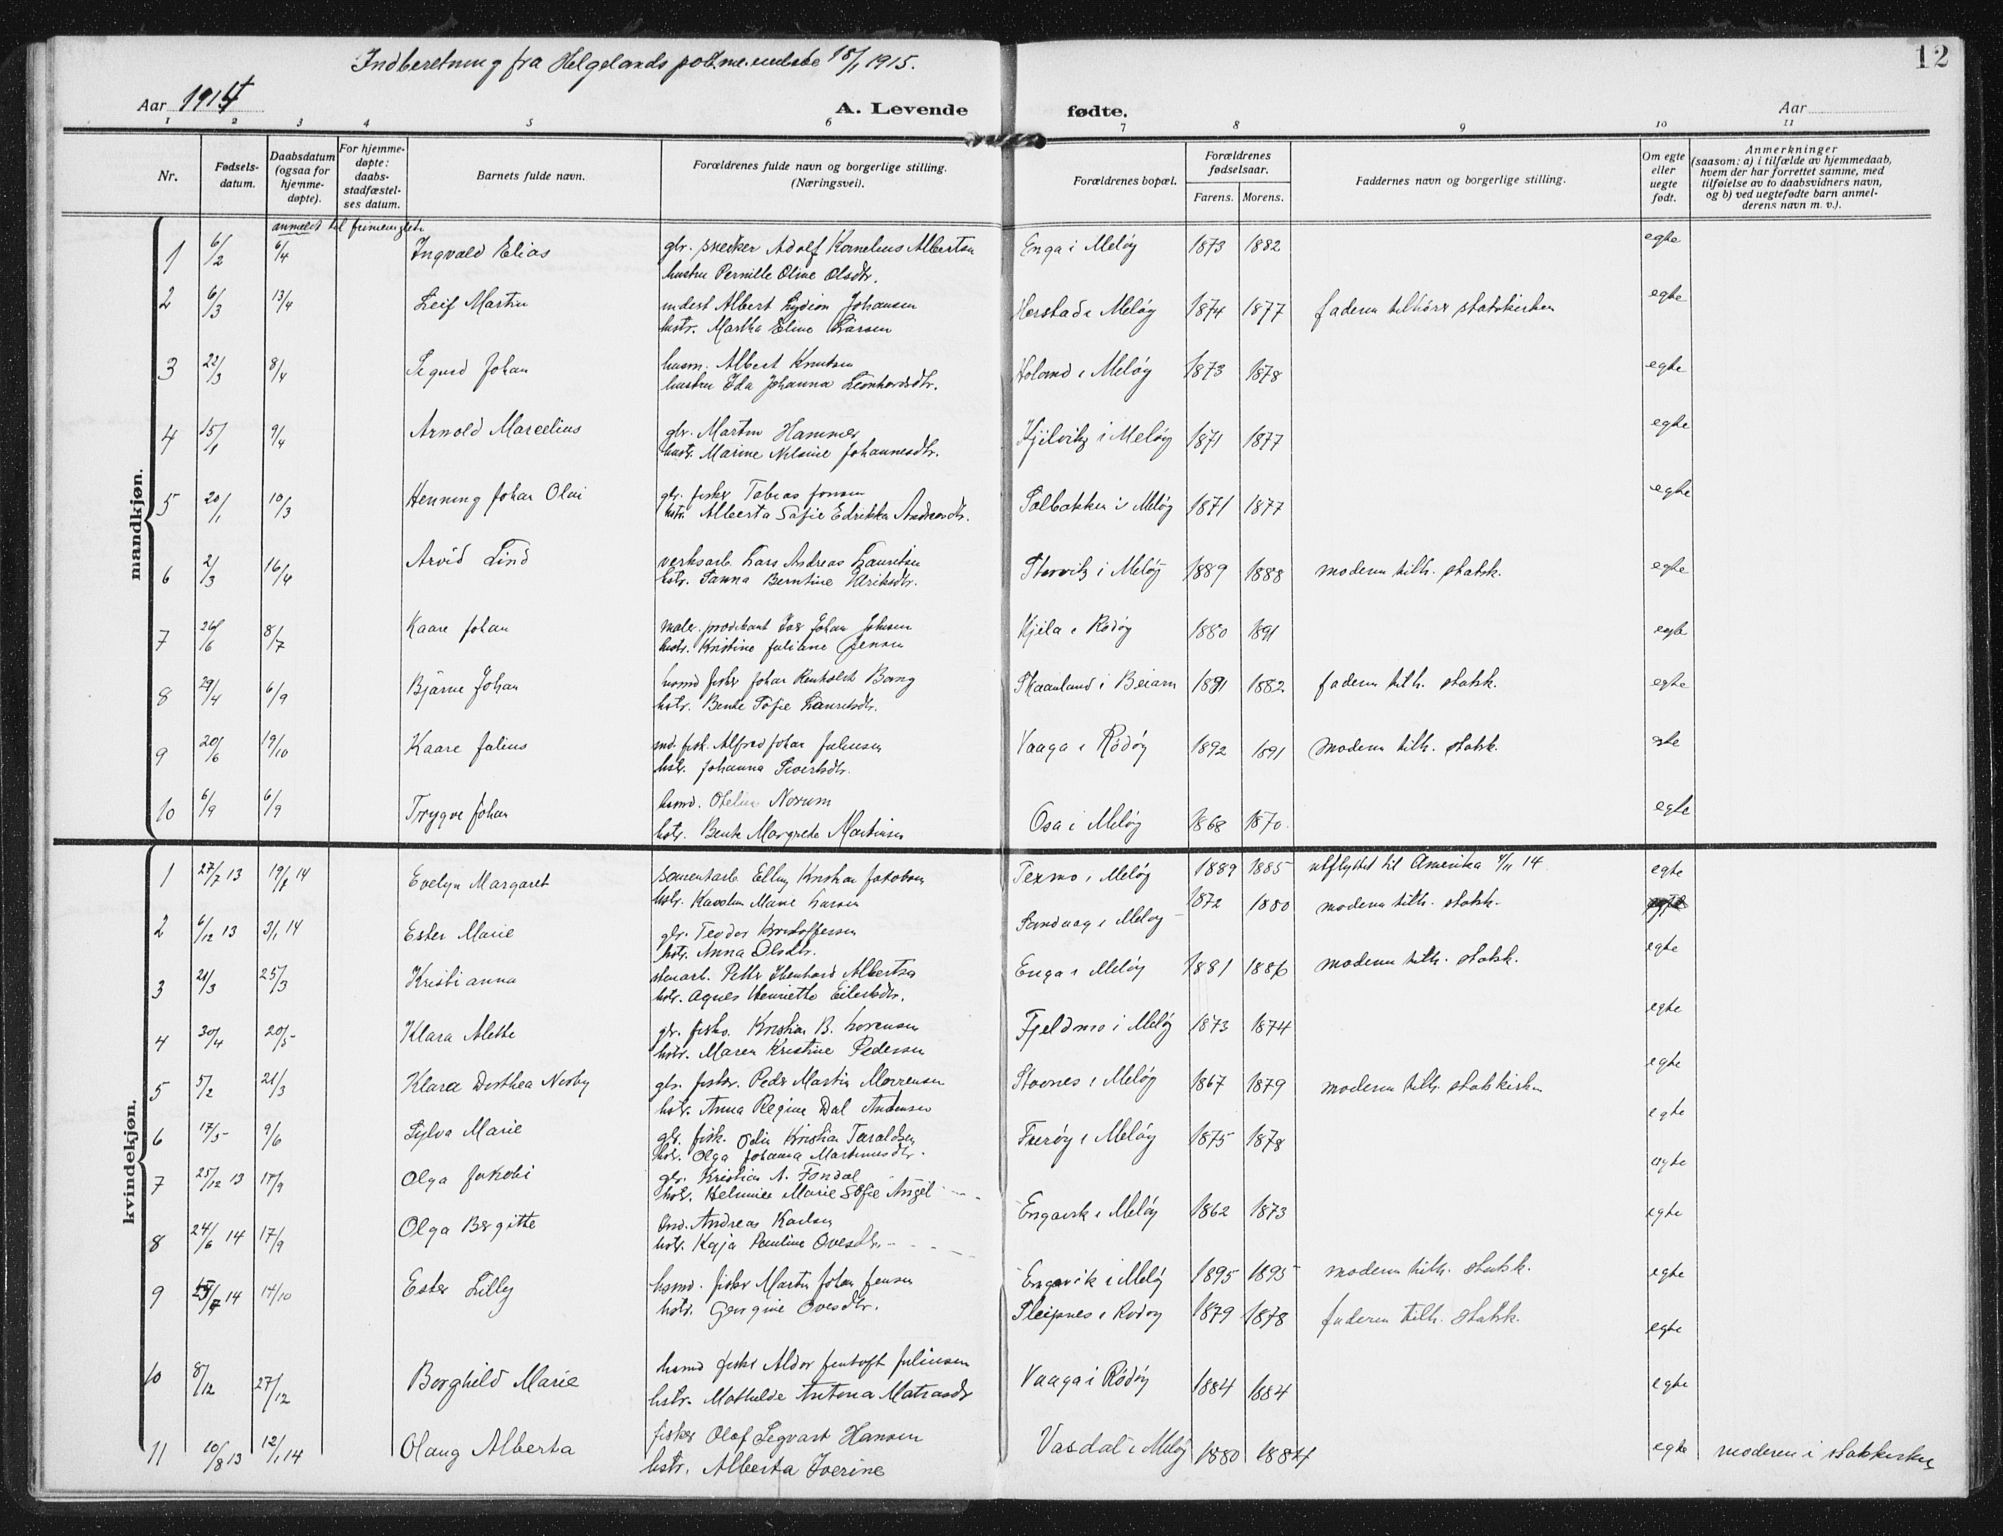 Indberetning fra Helgelands 18/1 1915.
12
Aar 1914
A. Levende fødte.
Aar
1 2 3 4 5 6 7 8 9 10 11
Nr.
Fødsels-datum.
Daabsdatum (ogsaa for hjemme-døpte).
For hjemme-døpte: daabs-stadfæstel-ses datum.
Barnets fulde navn.
Forældrenes fulde navn og borgerlige stilling. (Næringsvei).
Forældrenes bopæl.
Forældrenes fødselsaar.
Farens. Morens.
Faddernes navn og borgerlige stilling.
Om egte eller uegte født.
Anmerkninger
(saasom: a) i tilfælde av hjemmedaab, hvem der har forrettet samme, med tilføielse av to daabsvidners navn, og b) ved uegtefødte barn anmel-derens navn m. v.).
anmeldt til frimenighete
mandkjøn.
1 6/2 6/4 Ingvald Elias gbr. snedker Adolf Kornelius Albertsen Enga i Meløy 1873 1882 egte
hustru Pernille Oline Olsdtr.
2 6/3 13/4 Leif Martin inderst Albert Lydion Johansen Herstad i Meløy 1874 1877 faderen tilhører statskirken egte
hstr. Martha Eline Larsen
3 22/3 8/4 Sigurd Johan husm. Albert Knutsen Holand i Meløy 1873 1878 egte
hustru Ida Johanna Leonhardsdtr.
4 15/1 9/4 Arnold Marcelius gbr. Martin Hammer Kjelvik i Meløy 1871 1877 egte
hustr. Marine Nilsine Johannesdtr.
5 20/1 10/3 Henning Johan Olai gbr. fisker Tobias Jonsen Solbakken i Meløy 1871 1877 egte
hstr. Alberta Sofie Edrikke Andreasdtr.
6 2/3 16/4 Arvid Lind verksarb. Lars Andreas Lauritsen Storvik i Meløy 1889 1888 moderen tilh. statsk. egte
hstr. Sanna Berntine Ulriksdtr.
7 26/6 8/7 Kaare Johan maler. prædikant Johan Johnsen Kjela i Rødøy 1880 1891 egte
hustr. Kristine Juliane Jensen
8 29/4 6/9 Bjarne Johan husmd fisker Johan Renholdt Bang Skaanland i Beiarn 1891 1882 faderen tilh. statsk. egte
hstr. Bente Sofie Lauritsdtr.
9 20/6 19/10 Kaare Julius md. fisk. Alfred Johan Juliussen Vaaga i Rødøy 1892 1891 moderen tilh. statsk. egte
hstr. Johanna Sivertsdtr.
10 6/9 6/9 Trygve Johan hsmd. Otelius Norum Osa i Meløy 1868 1870. egte
hstr. Bente Margrete Martinsen
kvindekjøn.
1 27/7 13 19/7 14 Evelyn Margaret sementarb. Elling Kristian Jakobsen Texmo i Meløy 1889 1885 utflyttet til Amerika 4/11 14 egte
hstr. Karoline Marie Larsen 1872 1880 moderen tilh. statsk.
2 6/12 13 3/1 14 Ester Marie gbr. Teodor Kristoffersen Sandvaag i Meløy egte
hstr. Anna Olsdtr.
3 21/3 25/3 Kristianna stenarb. Petter Ebenhard Albertsen Enga i Meløy 1881 1886 moderen tilh. statsk. egte
hstr. Agnes Henriette Eilertsdtr.
4 30/4 20/5 Klara Alette gbr. fisk. Kristian B. Lorensen Fjeldmo i Meløy 1873 1874 egte
hstr. Maren Kristine Pedersen
5 5/2 21/3 Klara Dorthea Nesby gbr. fisker. Peder Martin Mortensen Støvnes i Meløy 1867 1879 moderen tilh. statskirken egte
hstr. Anna Regine Dal Andersen
6 17/5 9/6 Sylva Marie gbr. fisk. Odin Kristian Taraldsen Fuerøy i Meløy 1875 1878 egte
hstr. Olga Johanna Martinusdtr.
7 25/12 13 17/9 Olga Jakobi gbr. Kristian A. Fondal egte
hstr. Helmine Marie Sofie Angel Engavik i Meløy 1862 1873
8 24/6 14 17/9 Olga Bergitte Andreas Karlsen egte
hstr. Kaja Pauline Ovesdtr. Engavik i Meløy 1895 1895 moderen tilh. statsk.
9 14 14/10 Ester Lilly hsmd. fisker Martin Johan Jensen egte
hstr. Georgine Ovesdtr. Sleipnes i Rødøy 1879 1878 faderen tilh. statsk. egte
10 8/12 27/12 Borghild Marie hsmd fisker Aldor Jentoft Juliussen Vaaga i Rødøy 1884 1884 egte
hstr. Mathilde Antona Matiasdtr
11 10/8 13 12/1 14 Olaug Alberta fisker Olaf Segvart Hansen Vasdal i Meløy 1880 1884 egte moderen i statskirken
hstr. Alberta Iverine